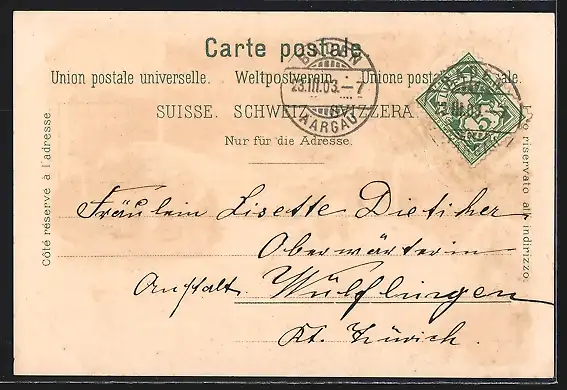 Carte postale.
Union postale universelle. Weltpostverein. Unione postale
SUISSE. SCHWEIZ. SVIZZERA.
Nur für die Adresse.
Côté réservé à l'adresse.
Lato riservato all' indirizzo.
23.III.03.–7
AARGAU
Fräulein Lisette Dieticher
Oberwärterin
Anstalt Wülflingen
Kt. Zürich.